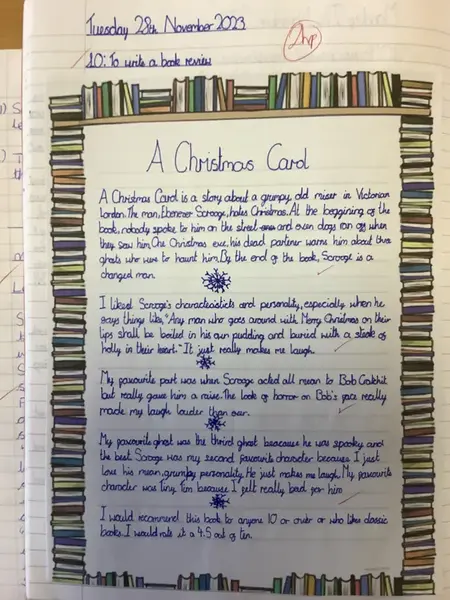 Tuesday 28th November 2023
2hp
LO: To write a book review
A Christmas Carol
A Christmas Carol is a story about a grumpy old miser in Victorian
London. The man, Ebenezer Scrooge, hates Christmas. At the beggining of the
book, nobody spoke to him on the street and even dogs ran off when
they saw him. One Christmas eve, his dead partner warns him about three
ghosts who were to haunt him. By the end of the book, Scrooge is a
changed man.
I liked Scrooge's characteristics and personality, especially when he
says things like, "Any man who goes around with Merry Christmas on their
lips shall be boiled in his own pudding and buried with a stake of
holly in their heart." It just really makes me laugh.
My favourite part was when Scrooge acted all mean to Bob Cratchit
but really gave him a raise. The look of horror on Bob's face really
made my laugh louder than ever.
My favourite ghost was the third ghost beacause he was spooky and
the best. Scrooge was my second favourite character because I just
love his mean, grumpy personality. He just makes me laugh. My favourite
character was Tiny Tim because I felt really bad for him
I would recommend this book to anyone 10 or over or who likes classic
books. I would rate it a 4.5 out of ten.